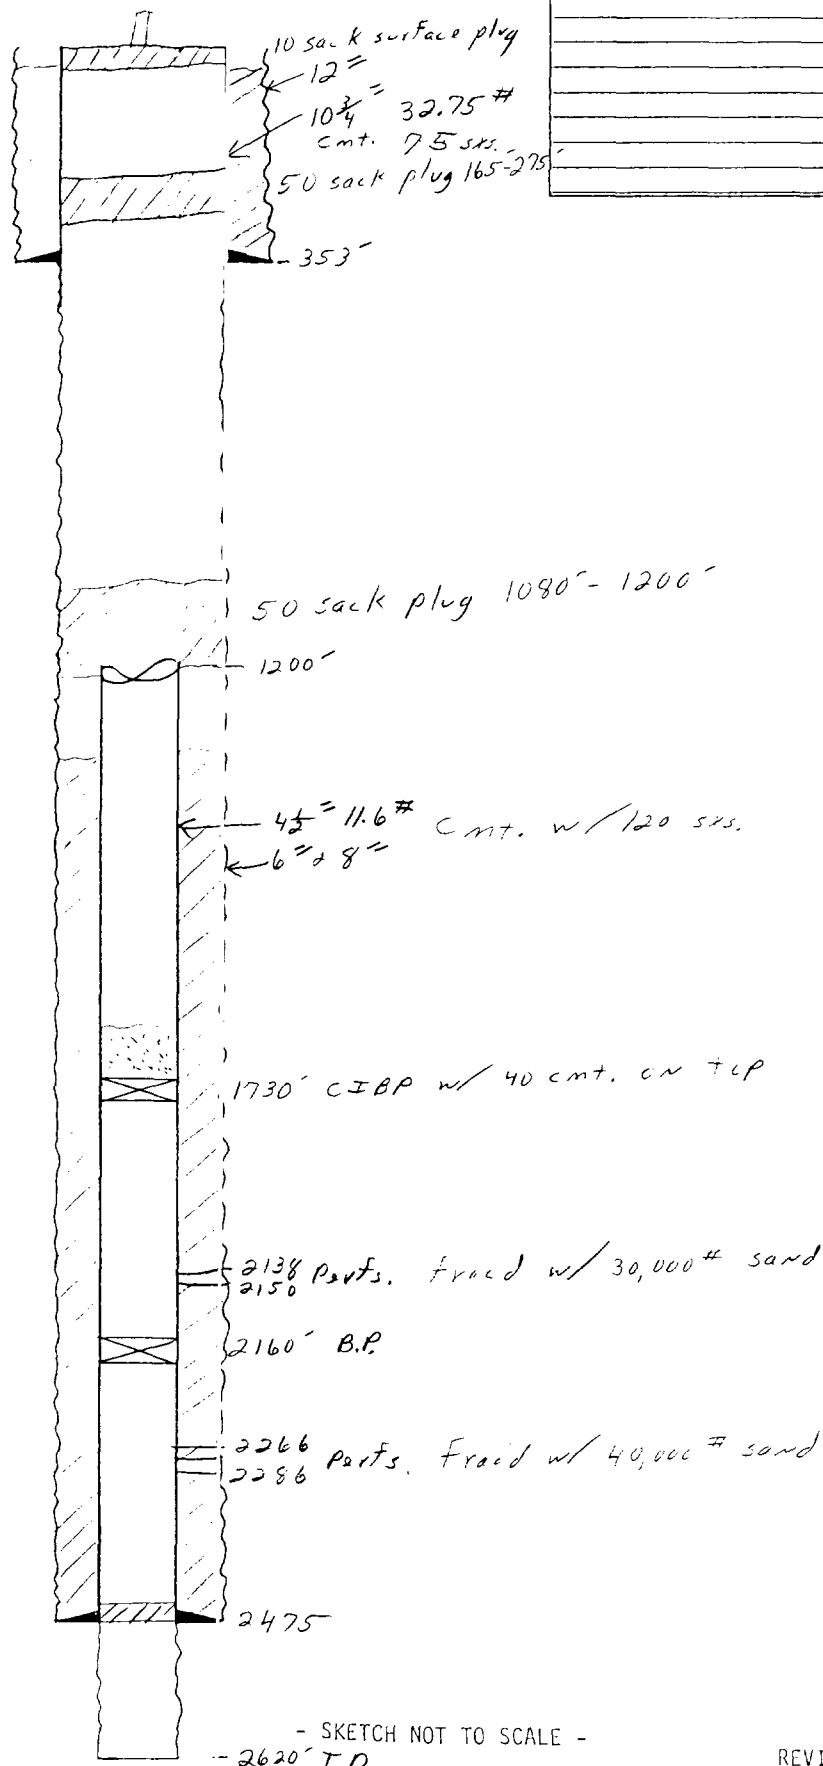 10 sack surface plug
12"
10 3/4" 32.75 #
cmt. 75 sxs.
50 sack plug 165'-275'
353'
50 sack plug 1080' - 1200'
1200'
4 1/2" 11.6 # Cmt. w/ 120 sxs.
6" & 8"
1730' CIBP w/ 40 cmt. on top
2138
2150 Perfs. fracd w/ 30,000 # sand
2160' B.P.
2266
2286 Perfs. Fracd w/ 40,000 # sand
2475
- SKETCH NOT TO SCALE -
2620' T.D.
REVI